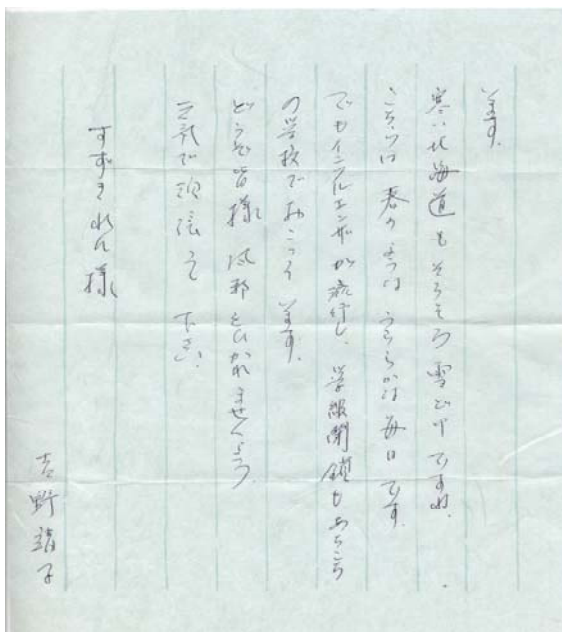 ます。
寒い北海道もそろそろ雪どけですね。
こちらは春のようなうららかな毎日です。
でもインフルエンザが流行し、学級閉鎖もあちこち
の学校でおこってます。
どうぞ皆様風邪をひかれませんよう
元気で頑張って下さい。
すずきれん様
吉野 子